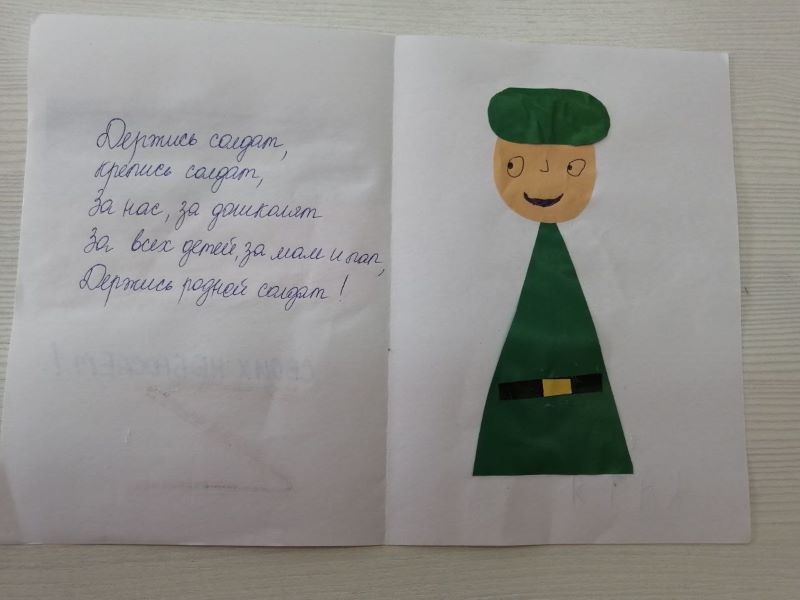 Держись солдат,
крепись солдат,
За нас, за дошколят
За всех детей, за мам и пап,
Держись родной солдат!
СВОИХ НЕ БРОСАЕМ!